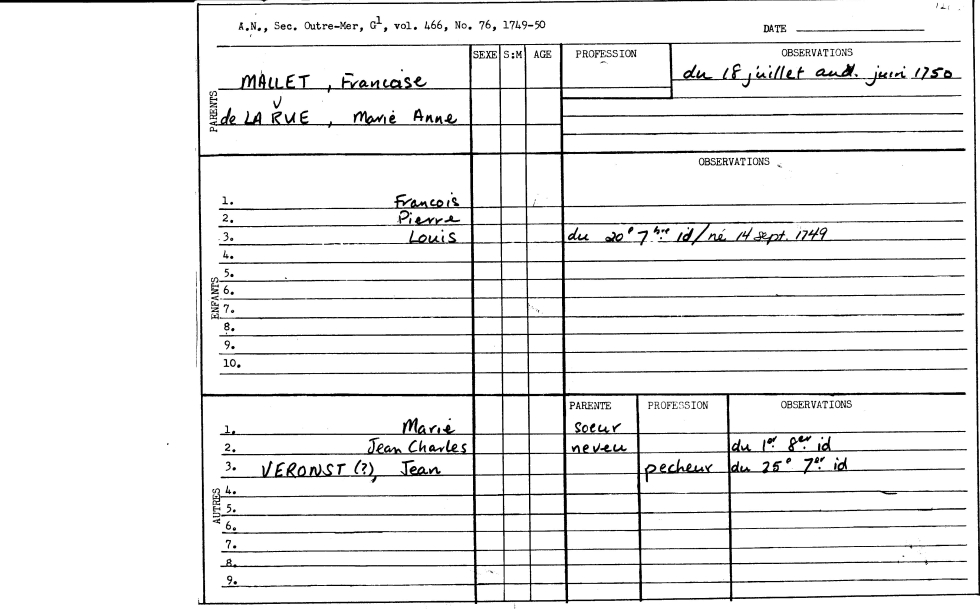 A.N., Sec. Outre-Mer, G1, vol. 466, No. 76, 1749-50
DATE
SEXE S:M AGE PROFESSION OBSERVATIONS
PARENTS
MALLET, Francoise du 18 juillet aud. juin 1750
de LA RUE, Marie Anne
OBSERVATIONS
ENFANTS
1. Francois
2. Pierre
3. Louis du 20e 7bre id/né 14 sept. 1749
4.
5.
6.
7.
8.
9.
10.
PARENTE PROFESSION OBSERVATIONS
AUTRES
1. Marie soeur
2. Jean Charles neveu du 1er 8er id
3. VERONST (?), Jean pecheur du 25e 7er id
4.
5.
6.
7.
8.
9.